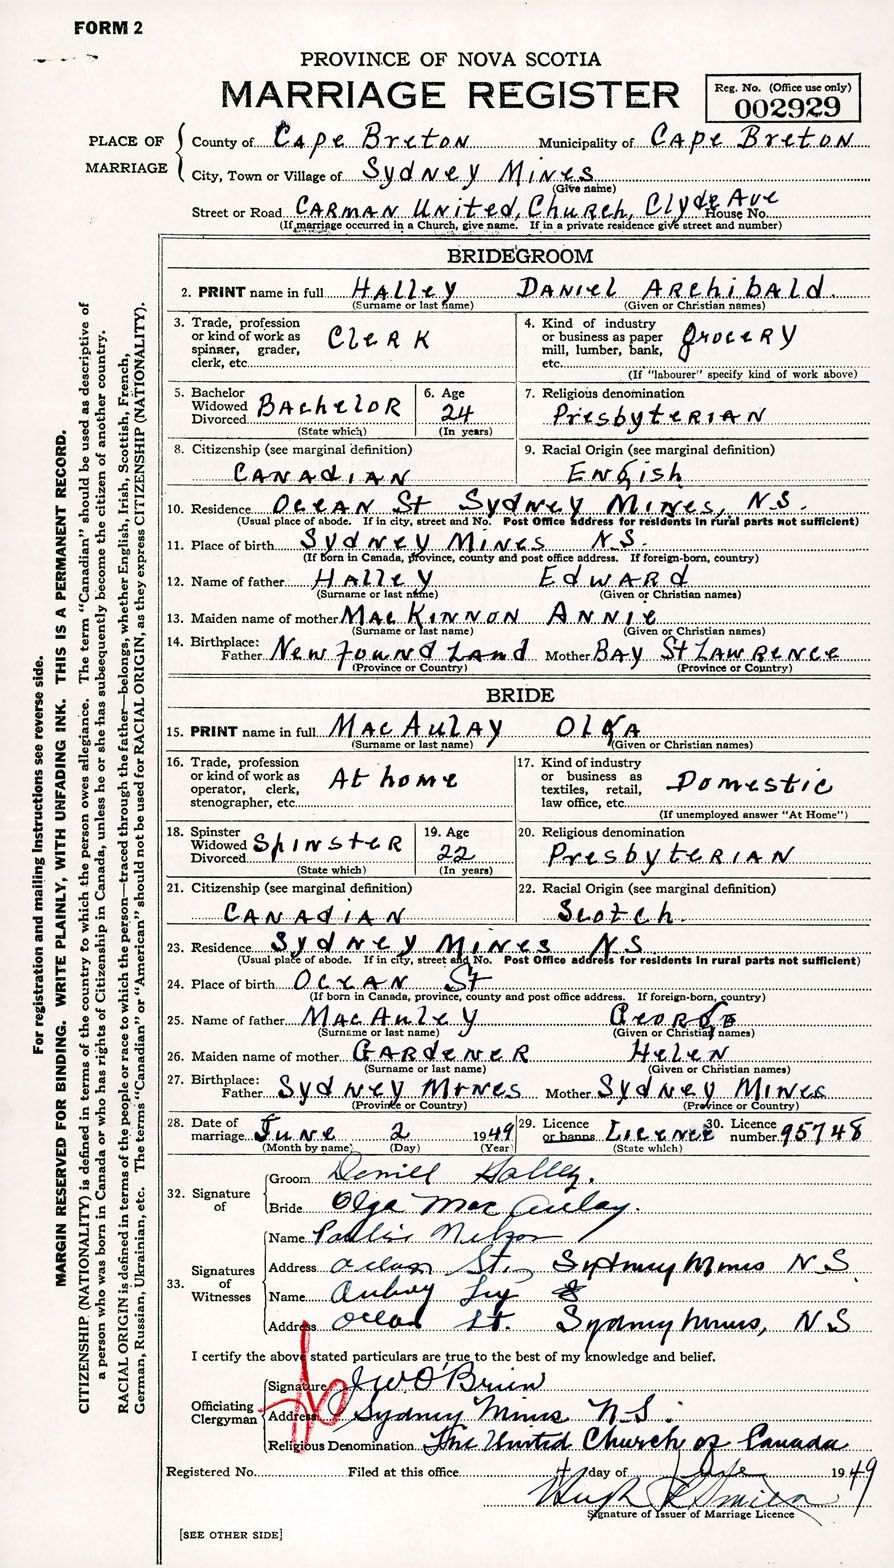 FORM 2
PROVINCE OF NOVA SCOTIA
MARRIAGE REGISTER
Reg. No. (Office use only)
002929
PLACE OF MARRIAGE
County of Cape Breton Municipality of Cape Breton
City, Town or Village of Sydney Mines
(Give name)
Street or Road Carman United Church, Clyde Ave House No.
(If marriage occurred in a Church, give name. If in a private residence give street and number)
BRIDEGROOM
2. PRINT name in full Halley Daniel Archibald.
(Surname or last name) (Given or Christian names)
3. Trade, profession or kind of work as spinner, grader, clerk, etc. Clerk
4. Kind of industry or business as paper mill, lumber, bank, etc. grocery
(If "labourer" specify kind of work above)
5. Bachelor Widowed Divorced Bachelor
(State which)
6. Age 24
(In years)
7. Religious denomination Presbyterian
8. Citizenship (see marginal definition)
Canadian
9. Racial Origin (see marginal definition)
English
10. Residence Ocean St Sydney Mines, N.S.
(Usual place of abode. If in city, street and No. Post Office address for residents in rural parts not sufficient)
11. Place of birth Sydney Mines N.S.
(If born in Canada, province, county and post office address. If foreign-born, country)
12. Name of father Halley Edward
(Surname or last name) (Given or Christian names)
13. Maiden name of mother MacKinnon Annie
(Surname or last name) (Given or Christian names)
14. Birthplace: Father Newfoundland Mother Bay St Lawrence
(Province or Country) (Province or Country)
BRIDE
15. PRINT name in full MacAulay Olga
(Surname or last name) (Given or Christian names)
16. Trade, profession or kind of work as operator, clerk, stenographer, etc. At home
17. Kind of industry or business as textiles, retail, law office, etc. Domestic
(If unemployed answer "At Home")
18. Spinster Widowed Divorced Spinster
(State which)
19. Age 22
(In years)
20. Religious denomination Presbyterian
21. Citizenship (see marginal definition)
Canadian
22. Racial Origin (see marginal definition)
Scotch.
23. Residence Sydney Mines N.S.
(Usual place of abode. If in city, street and No. Post Office address for residents in rural parts not sufficient)
24. Place of birth Ocean St
(If born in Canada, province, county and post office address. If foreign-born, country)
25. Name of father MacAuley George
(Surname or last name) (Given or Christian names)
26. Maiden name of mother Gardener Helen
(Surname or last name) (Given or Christian names)
27. Birthplace: Father Sydney Mines Mother Sydney Mines
(Province or Country) (Province or Country)
28. Date of marriage June 2 1949
(Month by name) (Day) (Year)
29. Licence or banns Licence
(State which)
30. Licence number 95748
32. Signature of
Groom Daniel Halley.
Bride Olga MacAulay.
33. Signatures of Witnesses
Name Nelson
Address Ocean St., Sydney Mines N.S.
Name Aubrey
Address Ocean St. Sydney Mines, N S
I certify the above stated particulars are true to the best of my knowledge and belief.
Officiating Clergyman
Signature J W O'Brien
Address Sydney Mines N.S.
Religious Denomination The United Church of Canada
Registered No. Filed at this office 4 day of June 1949
Hugh
Signature of Issuer of Marriage Licence
[SEE OTHER SIDE]
For registration and mailing instructions see reverse side.
MARGIN RESERVED FOR BINDING. WRITE PLAINLY, WITH UNFADING INK. THIS IS A PERMANENT RECORD.
CITIZENSHIP (NATIONALITY) is defined in terms of the country to which the person owes allegiance. The term "Canadian" should be used as descriptive of
a person who was born in Canada or who has rights of Citizenship in Canada, unless he or she has subsequently become the citizen of another country.
RACIAL ORIGIN is defined in terms of the people or race to which the person—traced through the father—belongs, whether English, Irish, Scottish, French,
German, Russian, Ukrainian, etc. The terms "Canadian" or "American" should not be used for RACIAL ORIGIN, as they express CITIZENSHIP (NATIONALITY).